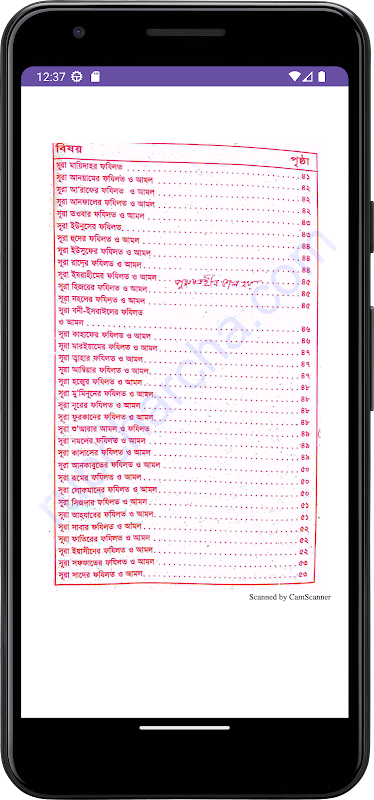 12:37
বিষয় পৃষ্ঠা
সূরা মায়িদাহর ফযিলত ৪১
সূরা আনয়ামের ফযিলত ও আমল ৪২
সূরা আ'রাফের ফযিলত ও আমল ৪২
সূরা আনফালের ফযিলত ও আমল ৪২
সূরা তওবার ফযিলত ও আমল ৪৩
সূরা ইউনুসের ফযিলত ৪৩
সূরা হুদের ফযিলত ও আমল ৪৪
সূরা ইউসুফের ফযিলত ও আমল ৪৪
সূরা রা'দের ফযিলত ও আমল ৪৪
সূরা ইবরাহীমের ফযিলত ও আমল ৪৫
সূরা হিজরের ফযিলত ও আমল ৪৫
সূরা নহলের ফযিলত ও আমল ৪৫
সূরা বনী-ইসরাঈলের ফযিলত
ও আমল ৪৬
সূরা কাহাফের ফযিলত ও আমল ৪৬
সূরা মারইয়ামের ফযিলত ও আমল ৪৭
সূরা ত্বাহার ফযিলত ও আমল ৪৭
সূরা আম্বিয়ার ফযিলত ও আমল ৪৭
সূরা হজ্বের ফযিলত ও আমল ৪৮
সূরা মু'মিনুনের ফযিলত ও আমল ৪৮
সূরা নূরের ফযিলত ও আমল ৪৮
সূরা ফুরকানের ফযিলত ও আমল ৪৮
সূরা শু'আরার আমল ও ফযিলত ৪৯
সূরা নমলের ফযিলত ও আমল ৪৯
সূরা কাসাসের ফযিলত ও আমল ৪৯
সূরা আনকাবুতের ফযিলত ও আমল ৫০
সূরা রূমের ফযিলত ও আমল ৫০
সূরা লোকমানের ফযিলত ও আমল ৫০
সূরা সিজদার ফযিলত ও আমল ৫১
সূরা আহযাবের ফযিলত ও আমল ৫১
সূরা সাবার ফযিলত ও আমল ৫২
সূরা ফাতিরের ফযিলত ও আমল ৫২
সূরা ইয়াসীনের ফযিলত ও আমল ৫২
সূরা সফফাতের ফযিলত ও আমল ৫৩
সূরা সাদের ফযিলত ও আমল ৫৩
Scanned by CamScanner